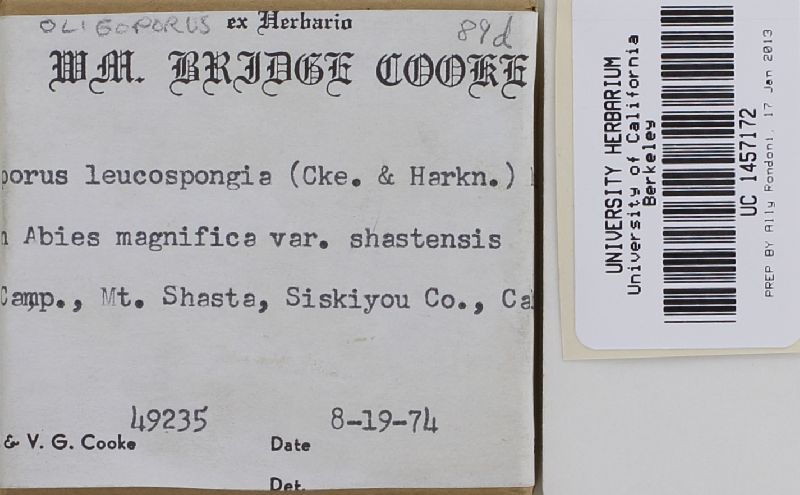 OLIGOPORUS ex Herbario 89d
WM. BRIDGE COOKE
porus leucospongia (Cke. & Harkn.)
n Abies magnifica var. shastensis
Camp., Mt. Shasta, Siskiyou Co., Ca
49235 8-19-74
& V. G. Cooke Date
Det.
UNIVERSITY HERBARIUM
University of California
Berkeley
UC 1457172
PREP BY Ally Rondoni, 17 Jan 2013